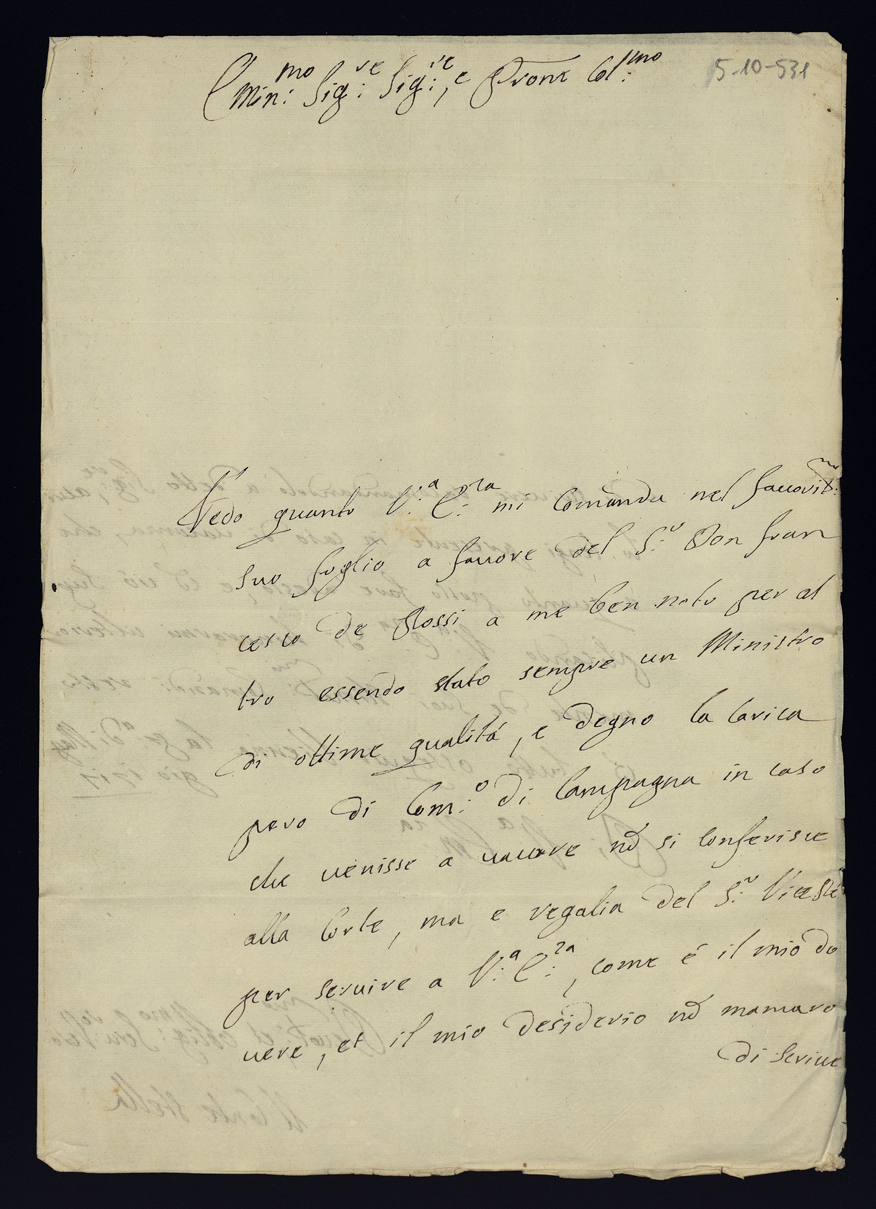 Emin:mo Sig:re Sig:re, e Prone Col:mo
5-10-531
Vedo quanto V:a E:za mi comanda nel favorit:mo
suo foglio a favore del S:r Don Fran
cesco de Rossi a me ben noto per al
tro essendo stato sempre un Ministro
di ottime qualità, e degno la carica
pero di Com:o di Campagna in caso
che venisse a vacare nō si conferisce
alla Corte, ma e regalia del S:r Vicerè
per servire a V:a E:za, come è il mio do
vere, et il mio desiderio nō mancaro
di scrive